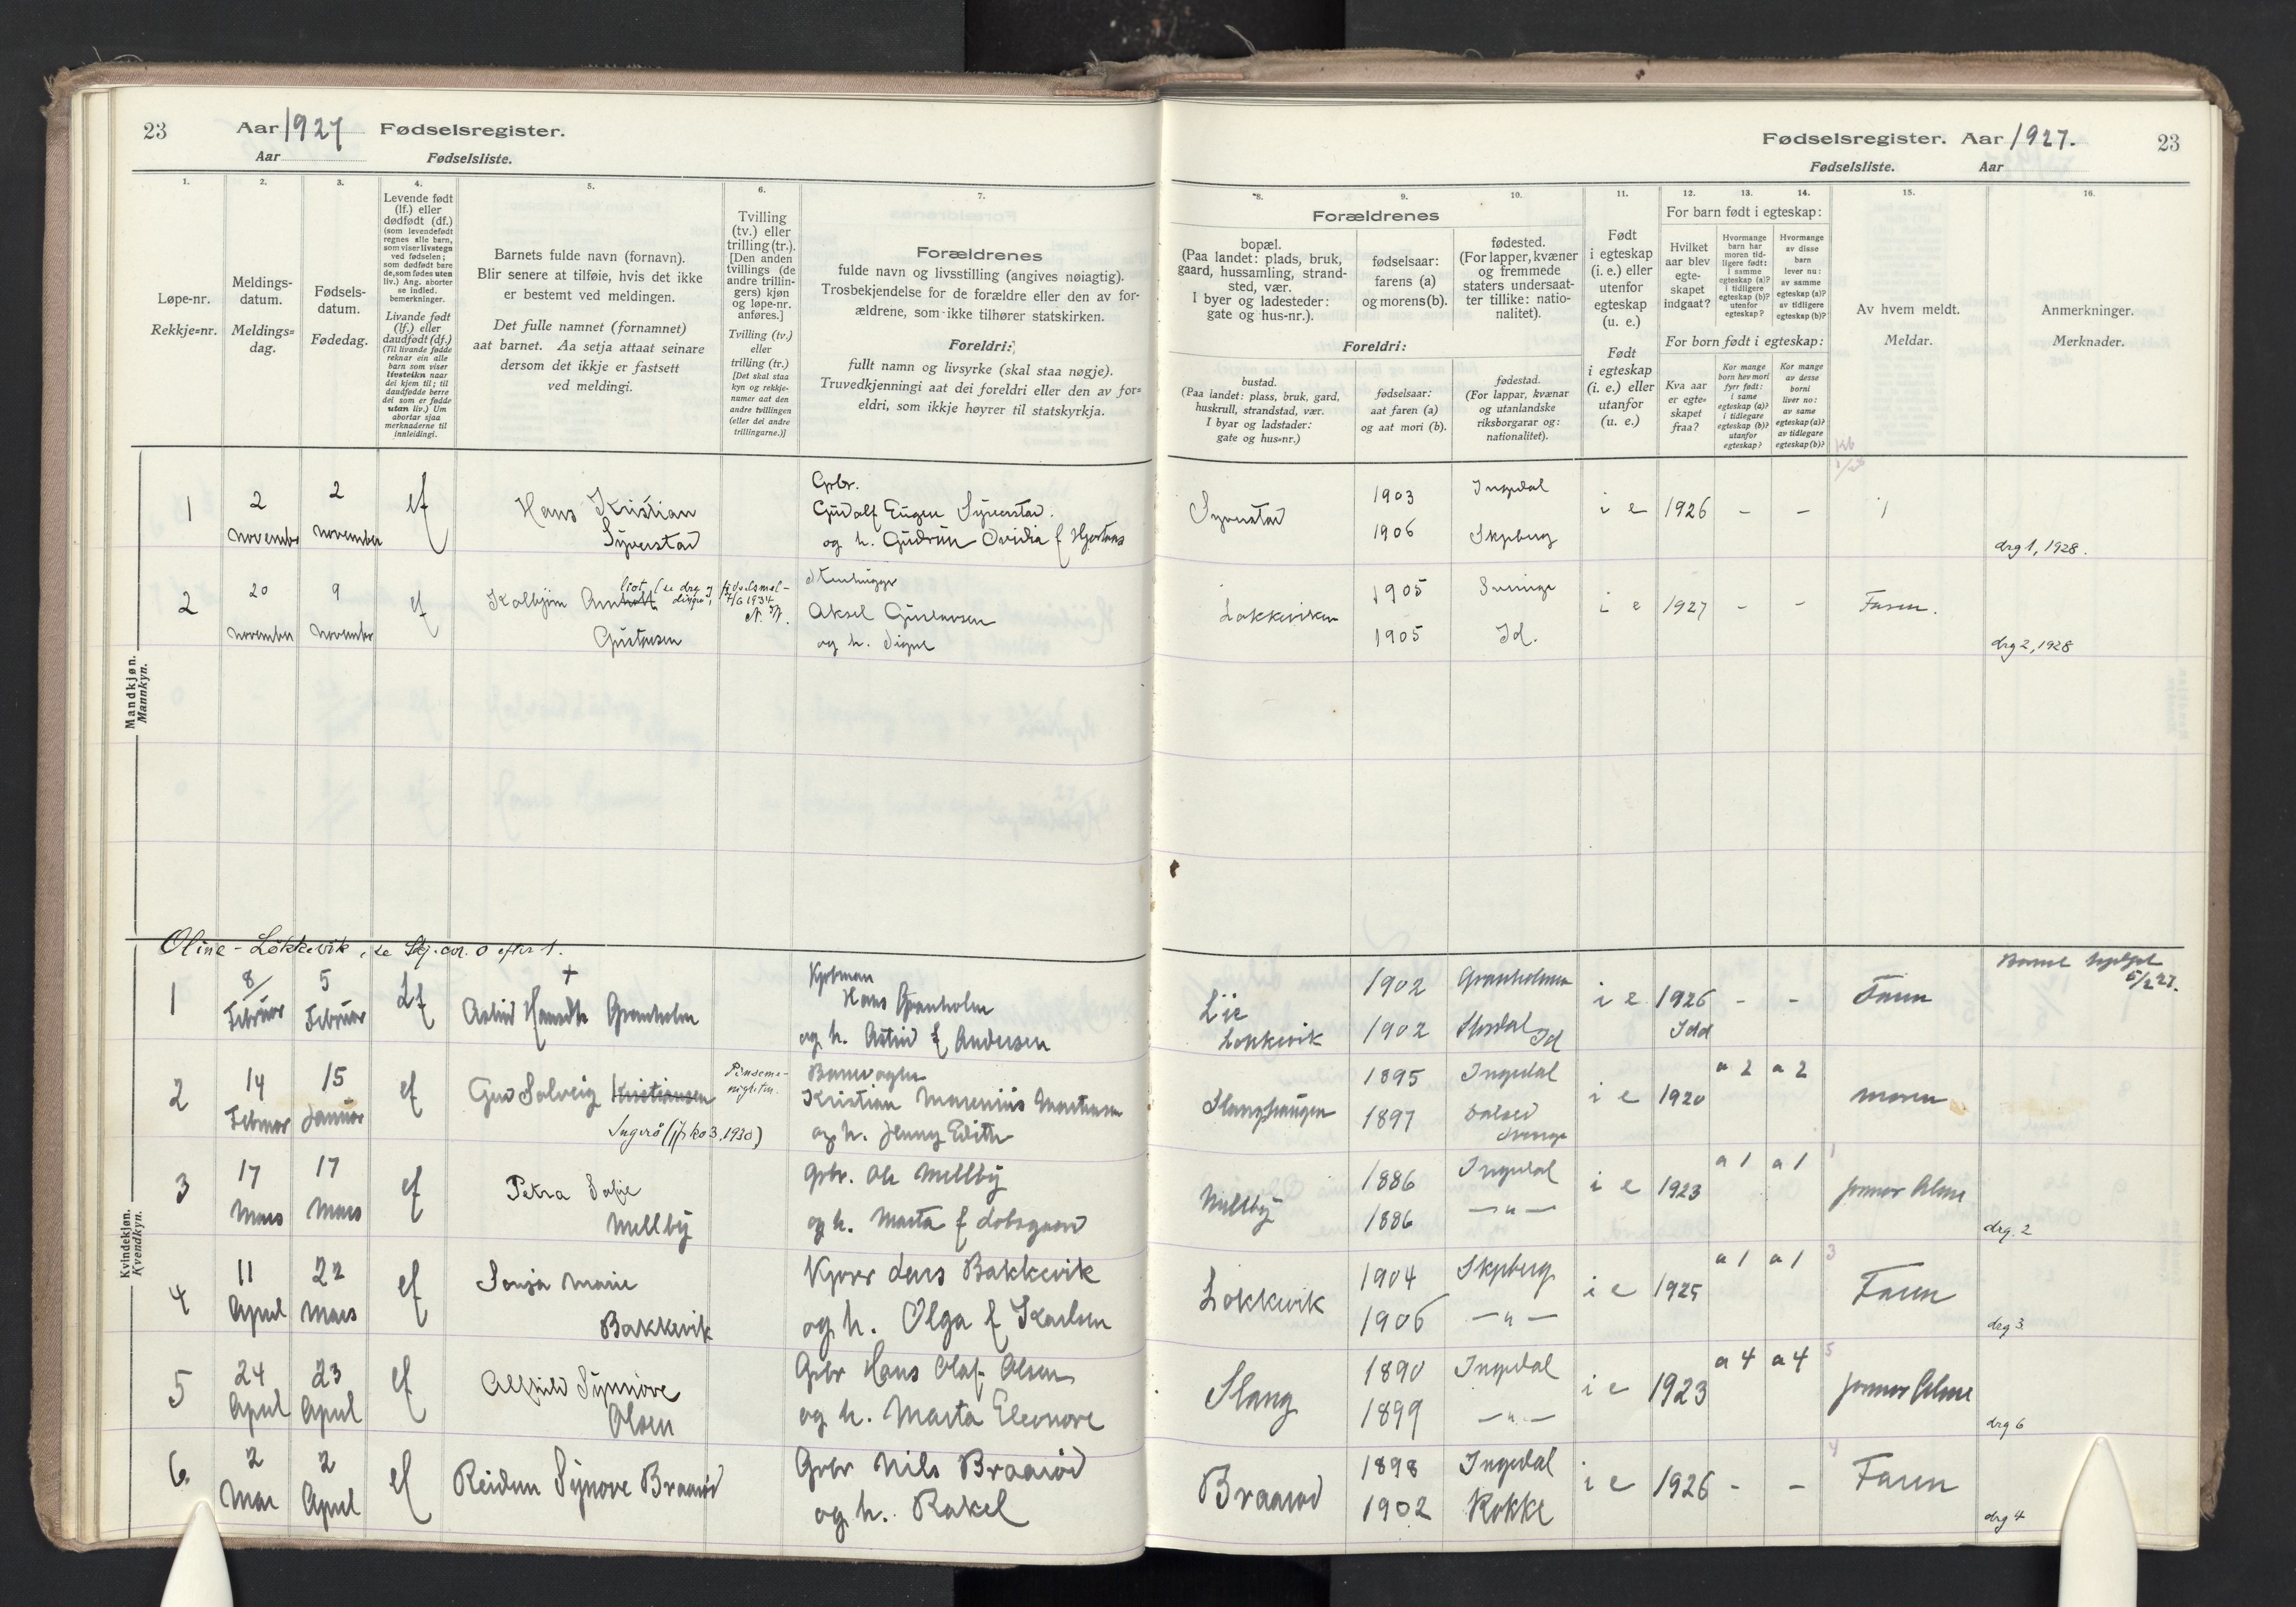 23 Aar 1927 Fødselsregister.
Aar Fødselsliste.
1. 2. 3. 4. 5. 6. 7.
Løpe-nr.
Rekkje=nr.
Meldings-
datum.
Meldings=
dag.
Fødsels-
datum.
Fødedag.
Levende født
(lf.) eller
dødfødt (df.)
(som levendefødt
regnes alle barn,
som viser livstegn
ved fødselen;
som dødfødt bare
de, som fødes uten
liv.) Ang. aborter
se indled.
bemerkninger.
Livande født
(lf.) eller
daudfødt (df.)
(Til livande fødde
reknar ein alle
barn som viser
livsteikn naar
dei kjem til; til
daudfødde berre
dei som er fødde
utan liv.) Um
abortar sjaa
merknaderne til
innleidingi.
Barnets fulde navn (fornavn).
Blir senere at tilføie, hvis det ikke
er bestemt ved meldingen.
Det fulle namnet (fornamnet)
aat barnet. Aa setja attaat seinare
dersom det ikkje er fastsett
ved meldingi.
Tvilling
(tv.) eller
trilling (tr.).
[Den anden
tvillings (de
andre trillin-
gers) kjøn
og løpe-nr.
anføres.]
Tvilling (tv.)
eller
trilling (tr.)
[Det skal staa
kyn og rekkje-
numer aat den
andre tvillingen
(eller dei andre
trillingarne.)]
Forældrenes
fulde navn og livsstilling (angives nøiagtig).
Trosbekjendelse for de forældre eller den av for-
ældrene, som ikke tilhører statskirken.
Foreldri:
fullt namn og livsyrke (skal staa nøgje).
Truvedkjenningi aat dei foreldri eller den av for=
eldri, som ikkje høyrer til statskyrkja.
Mandkjøn.
Mannkyn.
1
2
november
2
november
Hans Kristian
Syverstad
Gbr.
Gudolf Eugen Syverstad.
og h. Gudrun Ovidia f Hjortnæs
2
20
november
9
november
Kolbjørn Arn
Gustavsen
Aksel Gustavsen
og h. Signe
Oline - Løkkevik, se Skj. av. 0 efter 1.
Kvindekjøn.
Kvendkyn.
1
8/
Februar
5
Februar
Lf
+
Astrid Granholm
Hans Granholm
og h. Astrid f Andersen
2
14
Februar
15
Januar
Gud Solveig Kristiansen
Ingerø (jfr ko 3, 1930)
Kristian Marenius Martinsen
og h. Jenny Edith
3
17
Mars
17
Mars
Petra Sofie
Mellby
Gbr. Ole Mellby
og h. Marta f
4
11
April
22
Mars
Sonja Marie
Bakkevik
Lars Bakkevik
og h. Olga f Karlsen
5
24
April
23
April
Alfhild Synnøve
Olsen
Gbr Hans Olaf Olsen
og h. Marta Eleonore
6.
2
Mai
2
April
Reidun Synøve Braarød
Gbr Nils Braarød
og h. Rakel
Fødselsregister. Aar 1927. 23
Fødselsliste. Aar
8. 9. 10. 11. 12. 13. 14. 15. 16.
Forældrenes
bopæl.
(Paa landet: plads, bruk,
gaard, hussamling, strand-
sted, vær.
I byer og ladesteder:
gate og hus-nr.).
fødselsaar:
farens (a)
og morens (b).
fødested.
(For lapper, kvæner
og fremmede
staters undersaat-
ter tillike: natio-
nalitet).
Foreldri:
bustad.
(Paa landet: plass, bruk, gard,
huskrull, strandstad, vær.
I byar og ladstader:
gate og hus=nr.)
fødselsaar:
aat faren (a)
og aat mori (b).
fødestad.
(For lappar, kvænar
og utanlandske
riksborgarar og:
nationalitet).
Født
i egteskap
(i. e.) eller
utenfor
egteskap
(u. e.)
Født
i egteskap
(i. e.) eller
utanfor
egteskap
(u. e.)
For barn født i egteskap:
Hvilket
aar blev
egte-
skapet
indgaat?
Hvormange
barn har
moren tid-
ligere født:
i samme
egteskap (a)?
i tidligere
egteskap (b)?
utenfor
egteskap?
Hvormange
av disse
barn
lever nu:
av samme
egteskap (a)?
av tidligere
egteskap (b)?
For born født i egteskap:
Kva aar
er egte=
skapet
fraa?
Kor mange
born hev mori
fyrr født:
i same
egteskap (a)?
i tidlegare
egteskap (b)?
utanfor
egteskap?
Kor mange
av desse
borni
liver no:
av same
egteskap (a)?
av tidlegare
egteskap (b)?
Av hvem meldt.
Meldar.
Anmerkninger.
Merknader.
Syverstad
1903 Ingedal
1906 Skjeberg
i e 1926 - -
drg 1, 1928.
Løkkeviken
1905 Sverige
1905 Id.
i e 1927 - - Faren.
drg 2, 1928
Lie
Løkkevik
1902 Granholmen
1902 Id
i e 1926 - - Faren
Idd
5/2 27.
Slanghaugen
1895 Ingedal
1897
i e 1920 a 2 a 2 moren
Mellby
1886 Ingedal
1886 — " —
i e 1923 a 1 a 1
drg. 2
Løkkevik
1904 Skjeberg
1906 — " —
i e 1925 a 1 a 1 3
Faren
drg 3
Slang
1890 Ingedal
1899 — " —
i e 1923 a 4 a 4 5
drg 6
Braarød
1898 Ingedal
1902 Rokke
i e 1926 - - 4
Faren
drg 4